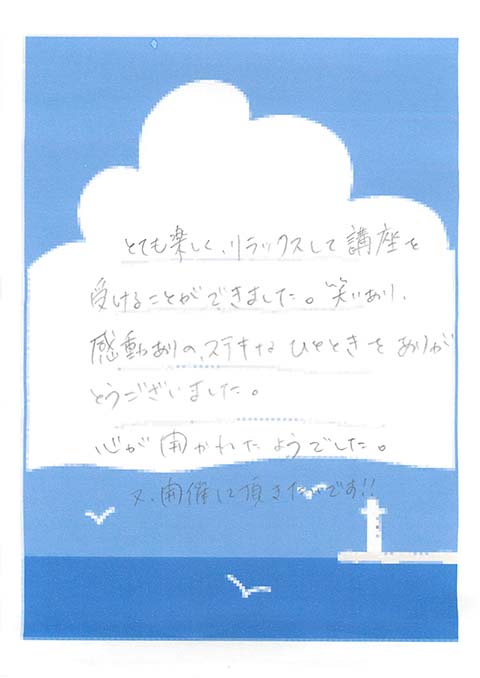 とても楽しく、リラックスして講座を
受けることができました。笑いあり、
感動ありの、ステキなひとときをありが
とうございました。
心が開かれたようでした。
又、開催して頂きたいです!!